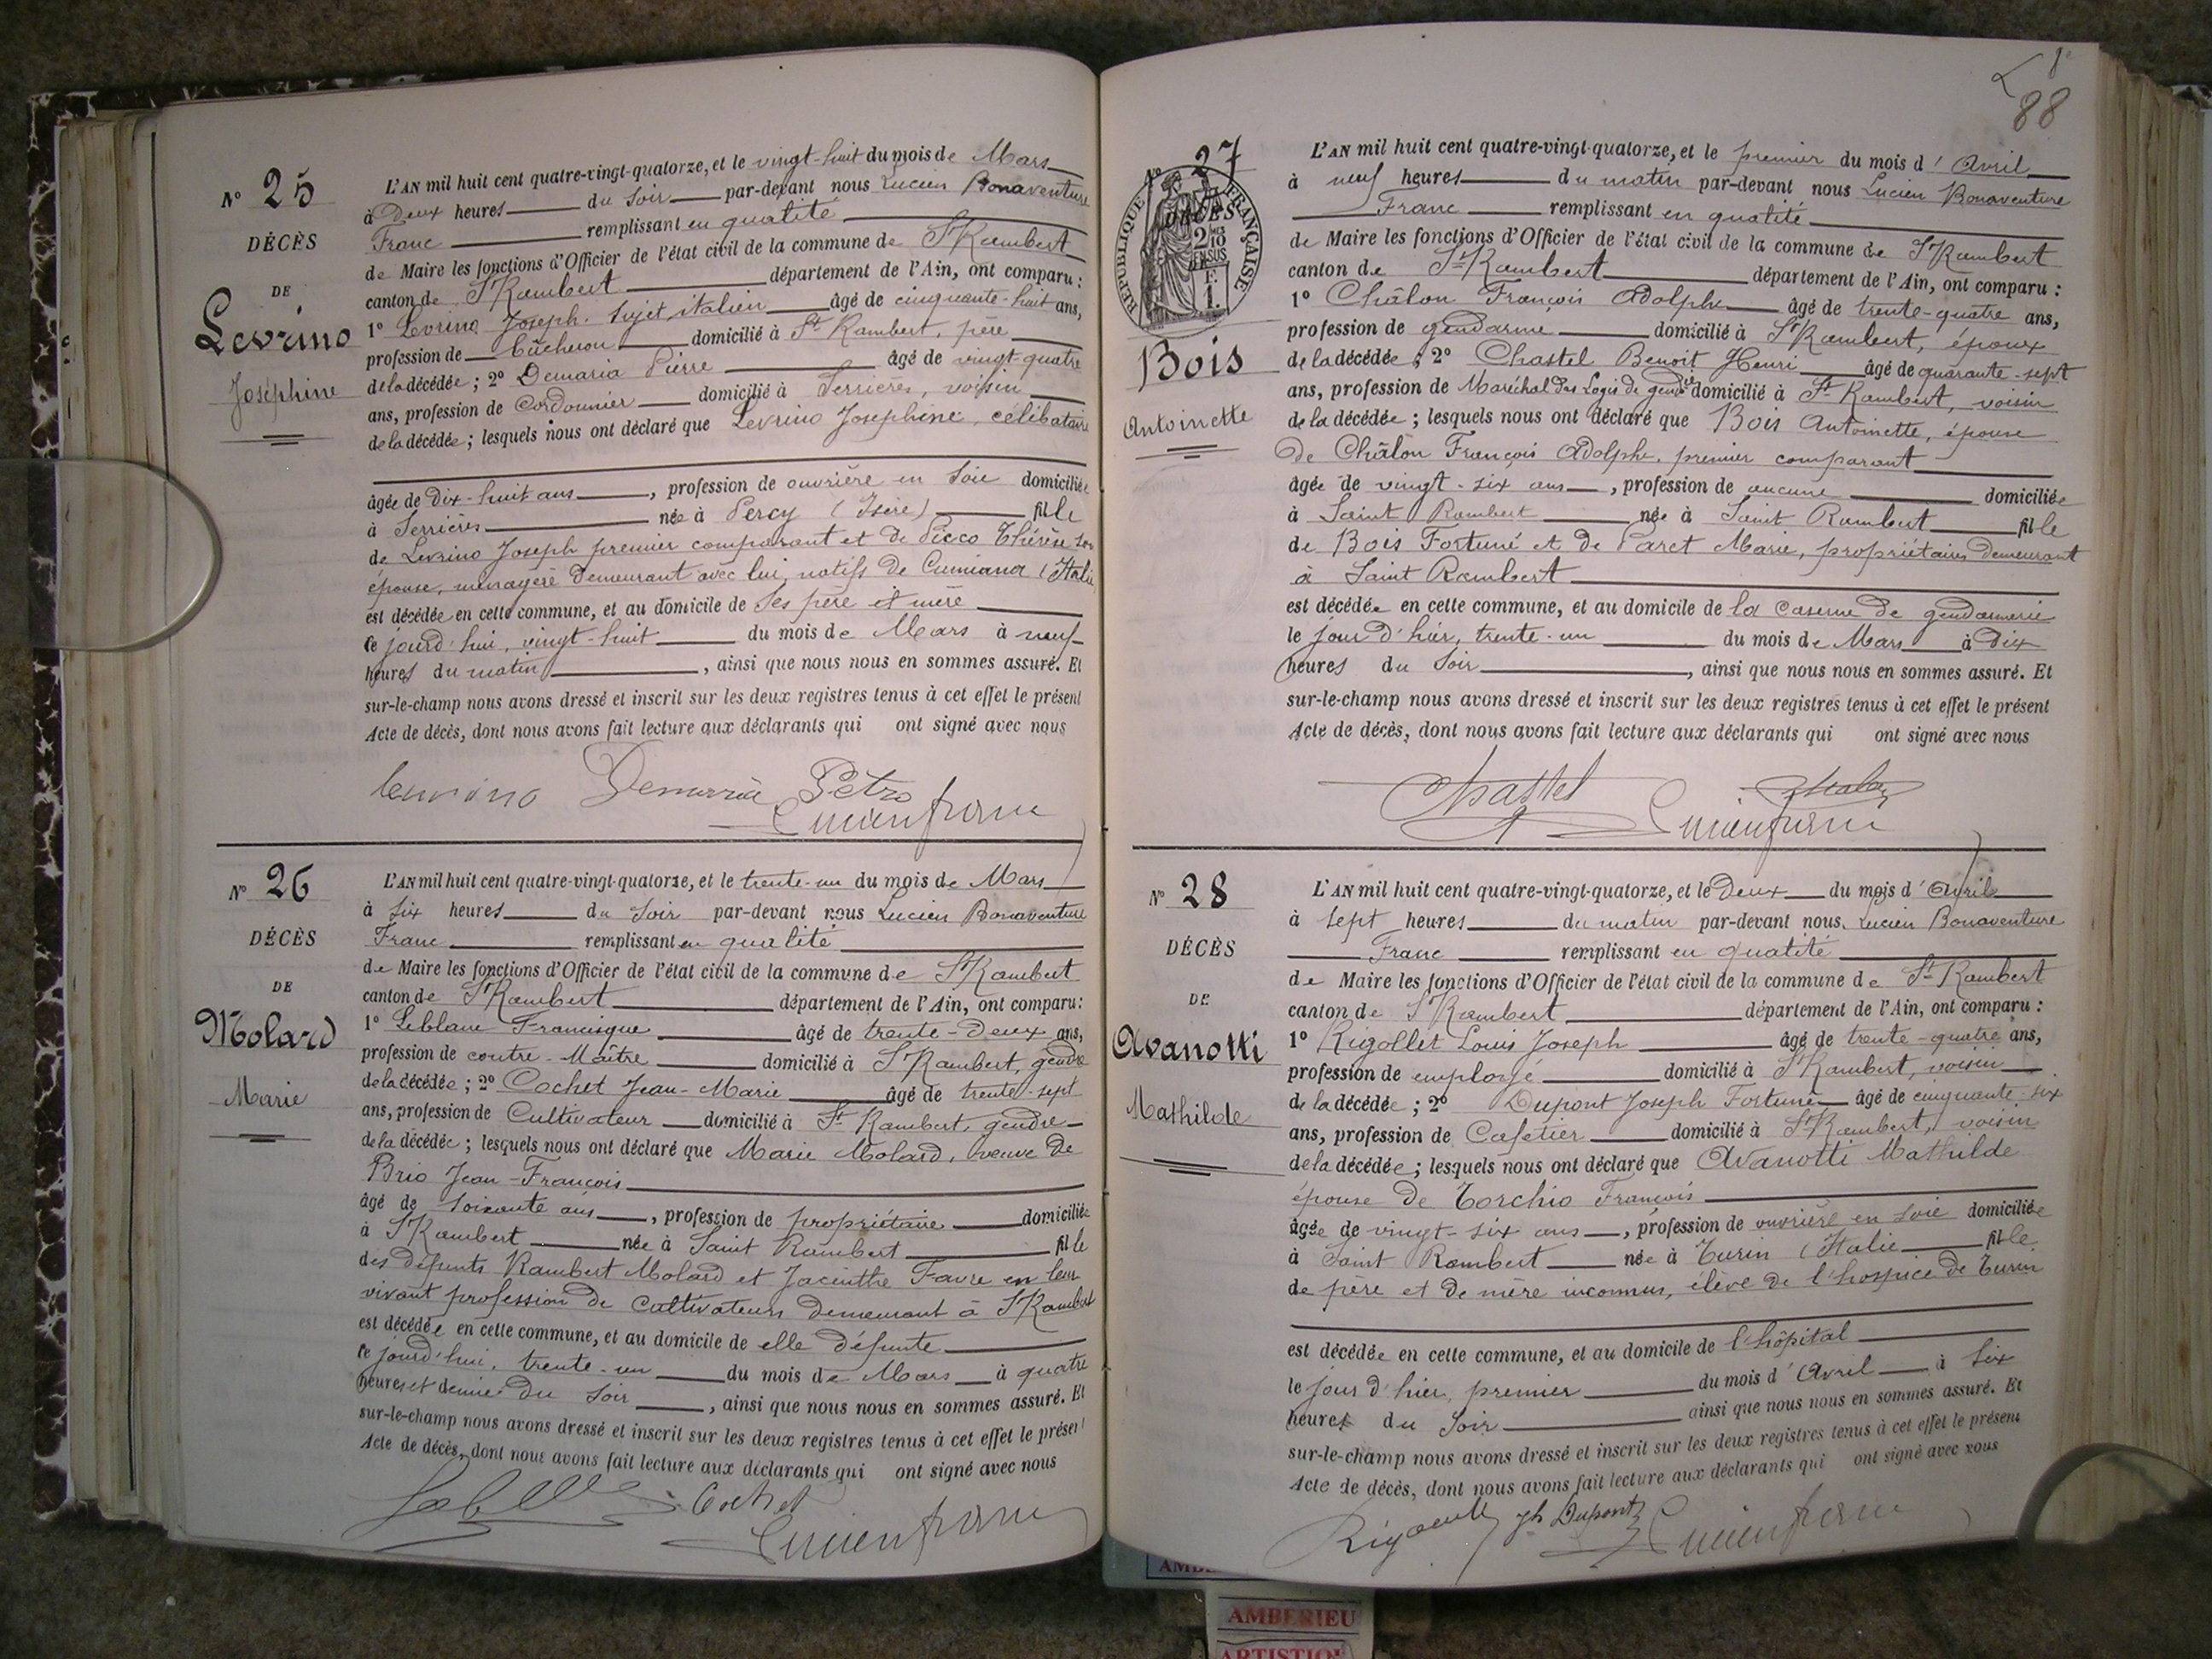 N° 25
DÉCÈS
DE
Levrino
Joséphine
L'AN mil huit cent quatre-vingt-quatorze, et le vingt-huit du mois de Mars
à deux heures du soir par-devant nous Lucien Bonaventure
Franc remplissant en qualité
de Maire les fonctions d'Officier de l'état civil de la commune de St Rambert
canton de St Rambert département de l'Ain, ont comparu :
1° Levrino Joseph. sujet italien âgé de cinquante-huit ans,
profession de bûcheron domicilié à St Rambert, père
de la décédée ; 2° Demaria Pierre âgé de vingt-quatre
ans, profession de Cordonnier domicilié à Serrières, voisin
de la décédée ; lesquels nous ont déclaré que Levrino Josephine, célibataire
âgée de dix-huit ans, profession de ouvrière en soie domiciliée
à Serrières née à Percy (Isère) fille
de Levrino Joseph premier comparant et de Picco Thérèse son
épouse, ménagère demeurant avec lui, natifs de Cumiana (Italie
est décédée en cette commune, et au domicile de ses père et mère
ce jourd'hui, vingt-huit du mois de Mars à neuf
heures du matin, ainsi que nous nous en sommes assuré. Et
sur-le-champ nous avons dressé et inscrit sur les deux registres tenus à cet effet le présent
Acte de décès, dont nous avons fait lecture aux déclarants qui ont signé avec nous
Levrino Demaria Petro
Lucien franc
N° 26
DÉCÈS
DE
Molard
Marie
L'AN mil huit cent quatre-vingt-quatorze, et le trente-un du mois de Mars
à six heures du soir par-devant nous Lucien Bonaventure
Franc remplissant en qualité
de Maire les fonctions d'Officier de l'état civil de la commune de St Rambert
canton de St Rambert département de l'Ain, ont comparu :
1° Leblanc Francisque âgé de trente-deux ans,
profession de contre-Maître domicilié à St Rambert, gendre
de la décédée ; 2° Cochet Jean-Marie âgé de trente-sept
ans, profession de Cultivateur domicilié à St Rambert, gendre
de la décédée ; lesquels nous ont déclaré que Marie Molard, veuve de
Brio Jean-François
âgé de soixante ans, profession de propriétaire domiciliée
à St Rambert née à Saint Rambert fille
des défunts Rambert Molard et Jacinthe Favre en leur
vivant profession de cultivateurs demeurant à St Rambert
est décédée en cette commune, et au domicile de elle défunte
ce jourd'hui, trente-un du mois de Mars à quatre
heures et demie du soir, ainsi que nous nous en sommes assuré. Et
sur-le-champ nous avons dressé et inscrit sur les deux registres tenus à cet effet le présent
Acte de décès, dont nous avons fait lecture aux déclarants qui ont signé avec nous
Cochet
Lucien franc
88
N° 27
RÉPUBLIQUE FRANÇAISE
DÉCÈS
2/10
EN SUS
F.
1.
Bois
Antoinette
L'AN mil huit cent quatre-vingt-quatorze, et le premier du mois d'Avril
à neuf heures du matin par-devant nous Lucien Bonaventure
Franc remplissant en qualité
de Maire les fonctions d'Officier de l'état civil de la commune de St Rambert
canton de St Rambert département de l'Ain, ont comparu :
1° Châlon François Adolphe âgé de trente-quatre ans,
profession de gendarme domicilié à St Rambert, époux
de la décédée ; 2° Chastel Benoit Henri âgé de quarante-sept
ans, profession de Maréchal des Logis de gendie domicilié à St Rambert, voisin
de la décédée ; lesquels nous ont déclaré que Bois Antoinette, épouse
de Châlon François Adolphe, premier comparant
âgée de vingt-six ans, profession de aucune domiciliée
à Saint Rambert née à Saint Rambert fille
de Bois Fortuné et de Paret Marie, propriétaires demeurant
à Saint Rambert
est décédée en cette commune, et au domicile de la caserne de gendarmerie
le jour d'hier, trente-un du mois de Mars à dix
heures du soir, ainsi que nous nous en sommes assuré. Et
sur-le-champ nous avons dressé et inscrit sur les deux registres tenus à cet effet le présent
Acte de décès, dont nous avons fait lecture aux déclarants qui ont signé avec nous
Chastel Chalon
Lucien franc
N° 28
DÉCÈS
DE
Avanotti
Mathilde
L'AN mil huit cent quatre-vingt-quatorze, et le deux du mois d'Avril
à sept heures du matin par-devant nous Lucien Bonaventure
Franc remplissant en qualité
de Maire les fonctions d'Officier de l'état civil de la commune de St Rambert
canton de St Rambert département de l'Ain, ont comparu :
1° Rigollet Louis Joseph âgé de trente-quatre ans,
profession de employé domicilié à St Rambert, voisin
de la décédée ; 2° Dupont Joseph Fortuné âgé de cinquante-six
ans, profession de Cafetier domicilié à St Rambert, voisin
de la décédée ; lesquels nous ont déclaré que Avanotti Mathilde
épouse de Torchio François
âgée de vingt-six ans, profession de ouvrière en soie domiciliée
à Saint Rambert née à Turin (Italie fille
de père et de mère inconnus, élève de l'hospice de Turin
est décédée en cette commune, et au domicile de l'hôpital
le jour d'hier, premier du mois d'Avril à six
heures du soir ainsi que nous nous en sommes assuré. Et
sur-le-champ nous avons dressé et inscrit sur les deux registres tenus à cet effet le présent
Acte de décès, dont nous avons fait lecture aux déclarants qui ont signé avec nous
Rigollet Jh Dupont Lucien franc
AMBERIEU
ARTISTIQU